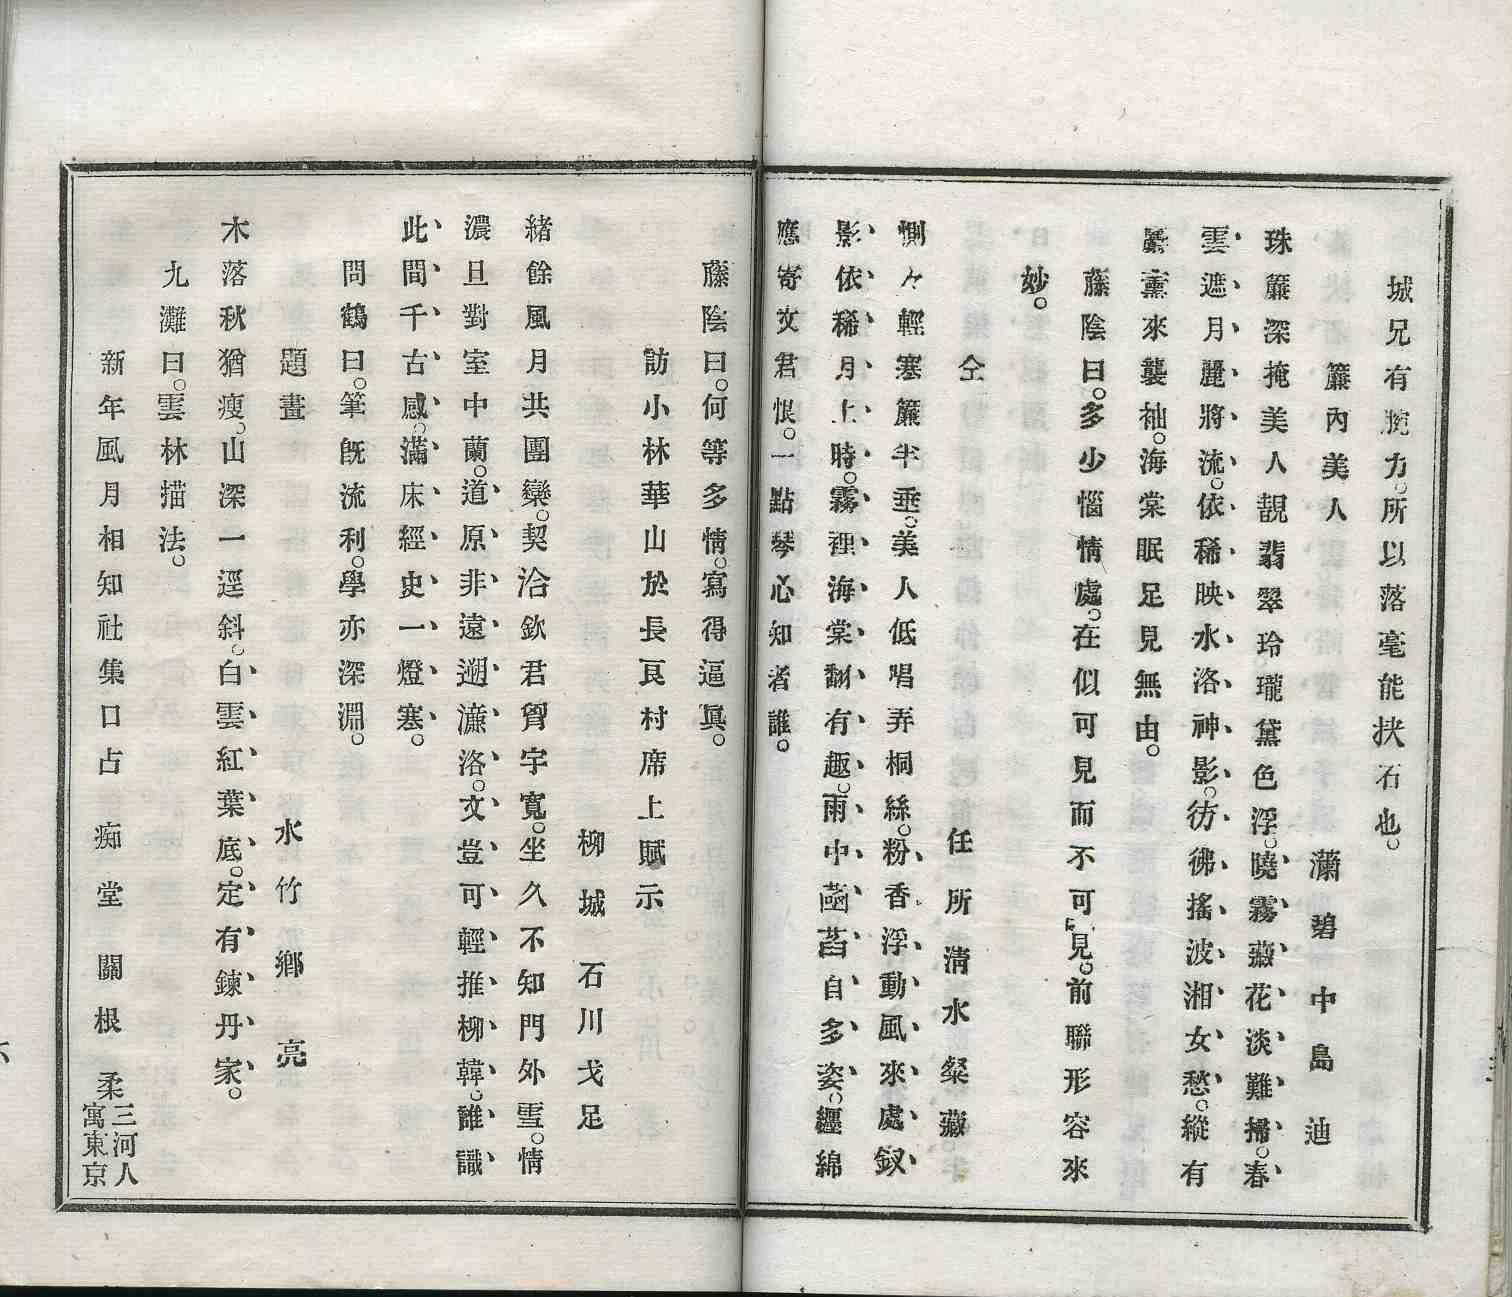 城兄有腕力。所以落毫能挾石也。
簾內美人　蘭碧中島　迪
珠簾深掩美人靚翡翠玲瓏黛色浮。曉霧藏花淡難掃。春
雲遮月麗將流。依稀映水洛神影。彷彿搖波湘女愁。縱有
麝薰來襲袖。海棠眠足見無由。
藤陰曰。多少惱情處。在似可見而不可見。前聯形容來
妙。
仝　任所清水粲藏
惻々輕寒簾半垂。美人低唱弄桐絲。粉香浮動風來處、釵
影依稀月上時。霧裡海棠翻有趣。雨中菡萏自多姿。纒綿
應寄文君恨。一點琴心知者誰。
藤陰曰。何等多情。寫得逼眞。
訪小林華山於長良村席上賦示
柳城石川戈足
緖餘風月共團欒。契洽欽君胷宇寬。坐久不知門外雪。情
濃且對室中蘭。道原非遠遡濂洛。文豈可輕推柳韓。誰識
此間千古感。滿床經史一燈寒。
問鶴曰。筆旣流利。學亦深淵。
題畫　水竹鄕　亮
木落秋猶瘦。山深一逕斜。白雲紅葉底。定有鍊丹家。
九灘曰。雲林描法。
新年風月相知社集口占　痴堂關根柔三河人寓東京